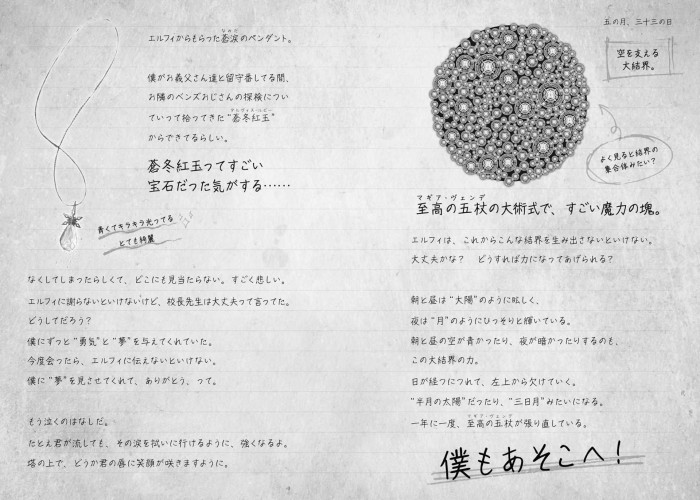 エルフィからもらった蒼涙のペンダント。
僕がお義父さん達と留守番してる間、
お隣のベンズおじさんの探検につい
ていって拾ってきた“蒼冬紅玉”
からできてるらしい。
蒼冬紅玉ってすごい
宝石だった気がする……
青くてキラキラ光ってる
とても綺麗
なくしてしまったらしくて、どこにも見当たらない。すごく悲しい。
エルフィに謝らないといけないけど、校長先生は大丈夫って言ってた。
どうしてだろう?
僕にずっと“勇気”と“夢”を与えてくれていた。
今度会ったら、エルフィに伝えないといけない。
僕に“夢”を見させてくれて、ありがとう、って。
もう泣くのはなしだ。
たとえ君が流しても、その涙を拭いに行けるように、強くなるよ。
塔の上で、どうか君の唇に笑顔が咲きますように。
五の月、三十三の日
空を支える
大結界。
よく見ると結界の
集合体みたい?
マギア・ヴェンデ
至高の五杖の大術式で、すごい魔力の塊。
エルフィは、これからこんな結界を生み出さないといけない。
大丈夫かな? どうすれば力になってあげられる?
朝と昼は“太陽”のように眩しく、
夜は“月”のようにひっそりと輝いている。
朝と昼の空が青かったり、夜が暗かったりするのも、
この大結界の力。
日が経つにつれて、左上から欠けていく。
“半月の太陽”だったり、“三日月”みたいになる。
マギア・ヴェンデ
一年に一度、至高の五杖が張り直している。
僕もあそこへ!